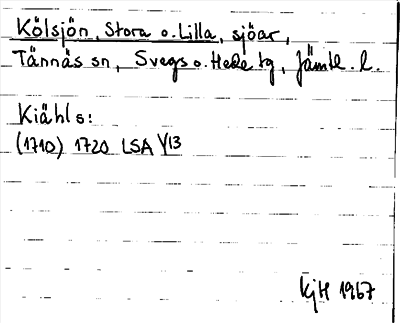 Kölsjön, Stora o. Lilla, sjöar,
Tännäs sn, Svegs o. Hede tg, Jämtl. l.
Kiähl s:
(1710) 1720 LSA Y13
KjH 1967